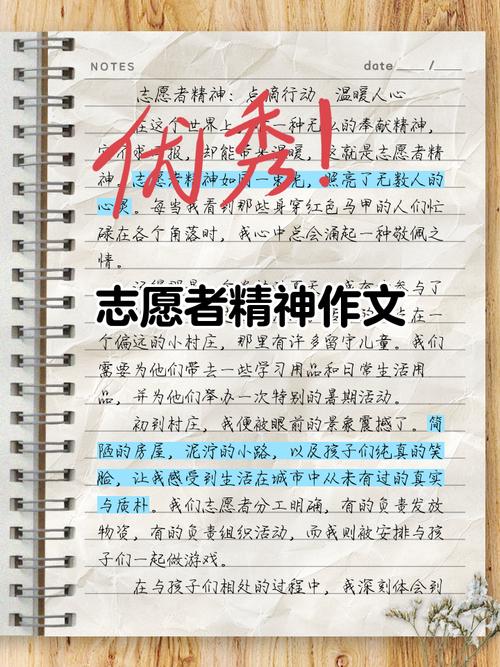 NOTES
date ___/___
志愿者精神：点滴行动，温暖人心
优秀！
在这个世界上 一种无 的奉献精神，
报，却能带来温暖，这就是志愿者精
神。志愿者精神如同一束光，照亮了无数人的
心灵。每当我看到那些身穿红色马甲的人们忙
碌在各个角落时，我心中总会涌起一种敬佩之
情。
参与了
志愿者精神作文
在一
个偏远的小村庄，那里有许多留守儿童。我们
需要为他们带去一些学习用品和日常生活用
品，并为他们举办一次特别的暑期活动。
初到村庄，我便被眼前的景象震撼了。简
陋的房屋，泥泞的小路，以及孩子们纯真的笑
脸，让我感受到生活在城市中从未有过的真实
与质朴。我们志愿者分工明确，有的负责发放
物资，有的负责组织活动，而我则被安排与孩
子们一起做游戏。
在与孩子们相处的过程中，我深刻体会到